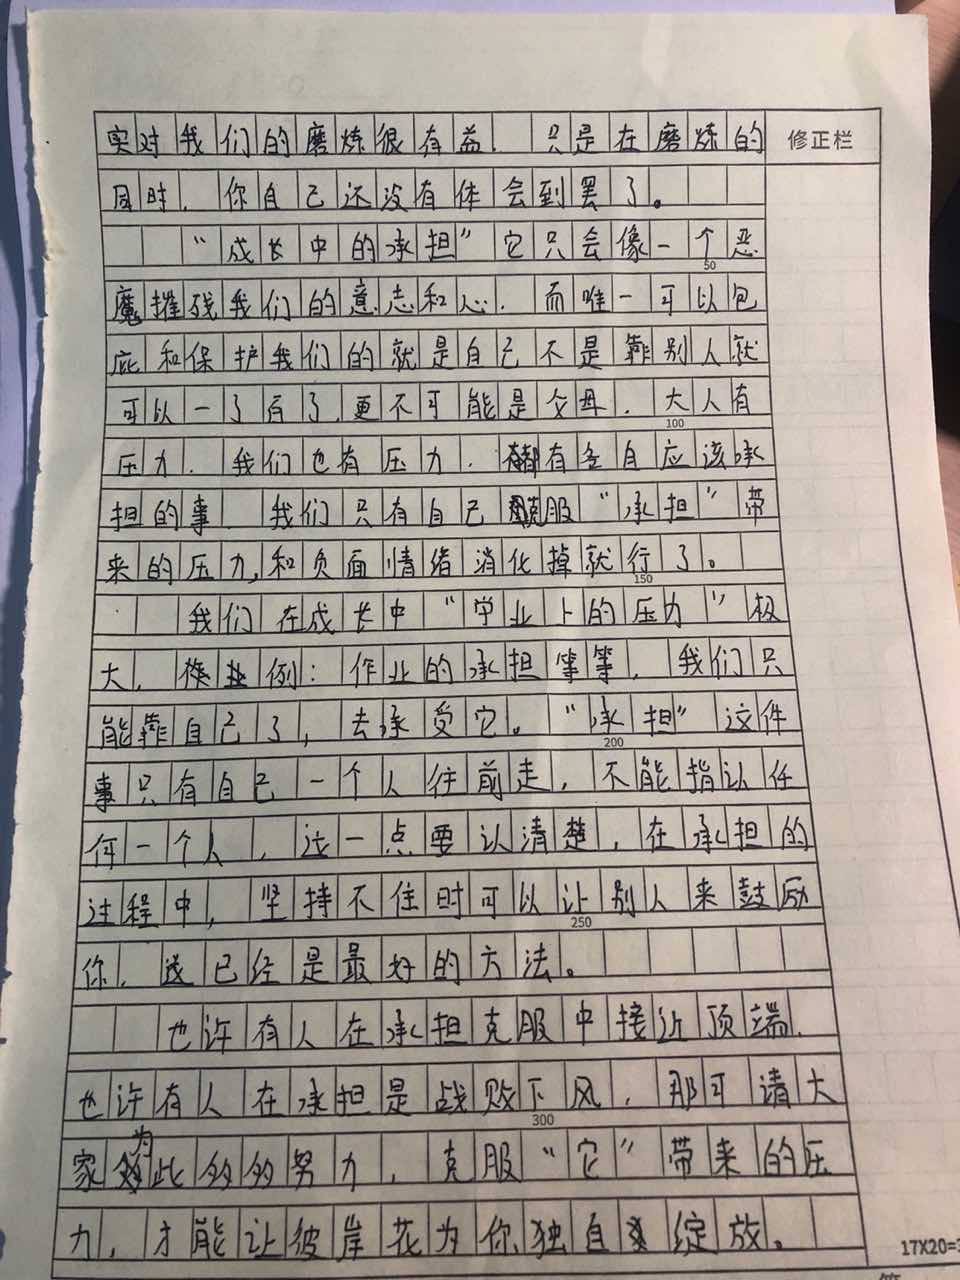 实对我们的磨炼很有益，只是在磨炼的
修正栏
同时，你自己还没有体会到罢了。
“成长中的承担”它只会像一个恶
50
魔摧残我们的意志和心，而唯一可以包
庇和保护我们的就是自己不是靠别人就
可以一了百了，更不可能是父母，大人有
100
压力，我们也有压力，都有各自应该承
担的事，我们只有自己克服“承担”带
来的压力，和负面情绪消化掉就行了。
150
我们在成长中“学业上的压力”极
大，例：作业的承担等等，我们只
能靠自己了，去承受它。“承担”这件
200
事只有自己一个人往前走，不能指认任
何一个人，这一点要认清楚，在承担的
过程中，坚持不住时可以让别人来鼓励
250
你，这已经是最好的方法。
也许有人在承担克服中接近顶端，
也许有人在承担是战败下风，那可请大
300
家为此多多努力，克服“它”带来的压
力，才能让彼岸花为你独自绽放。
17X20=3